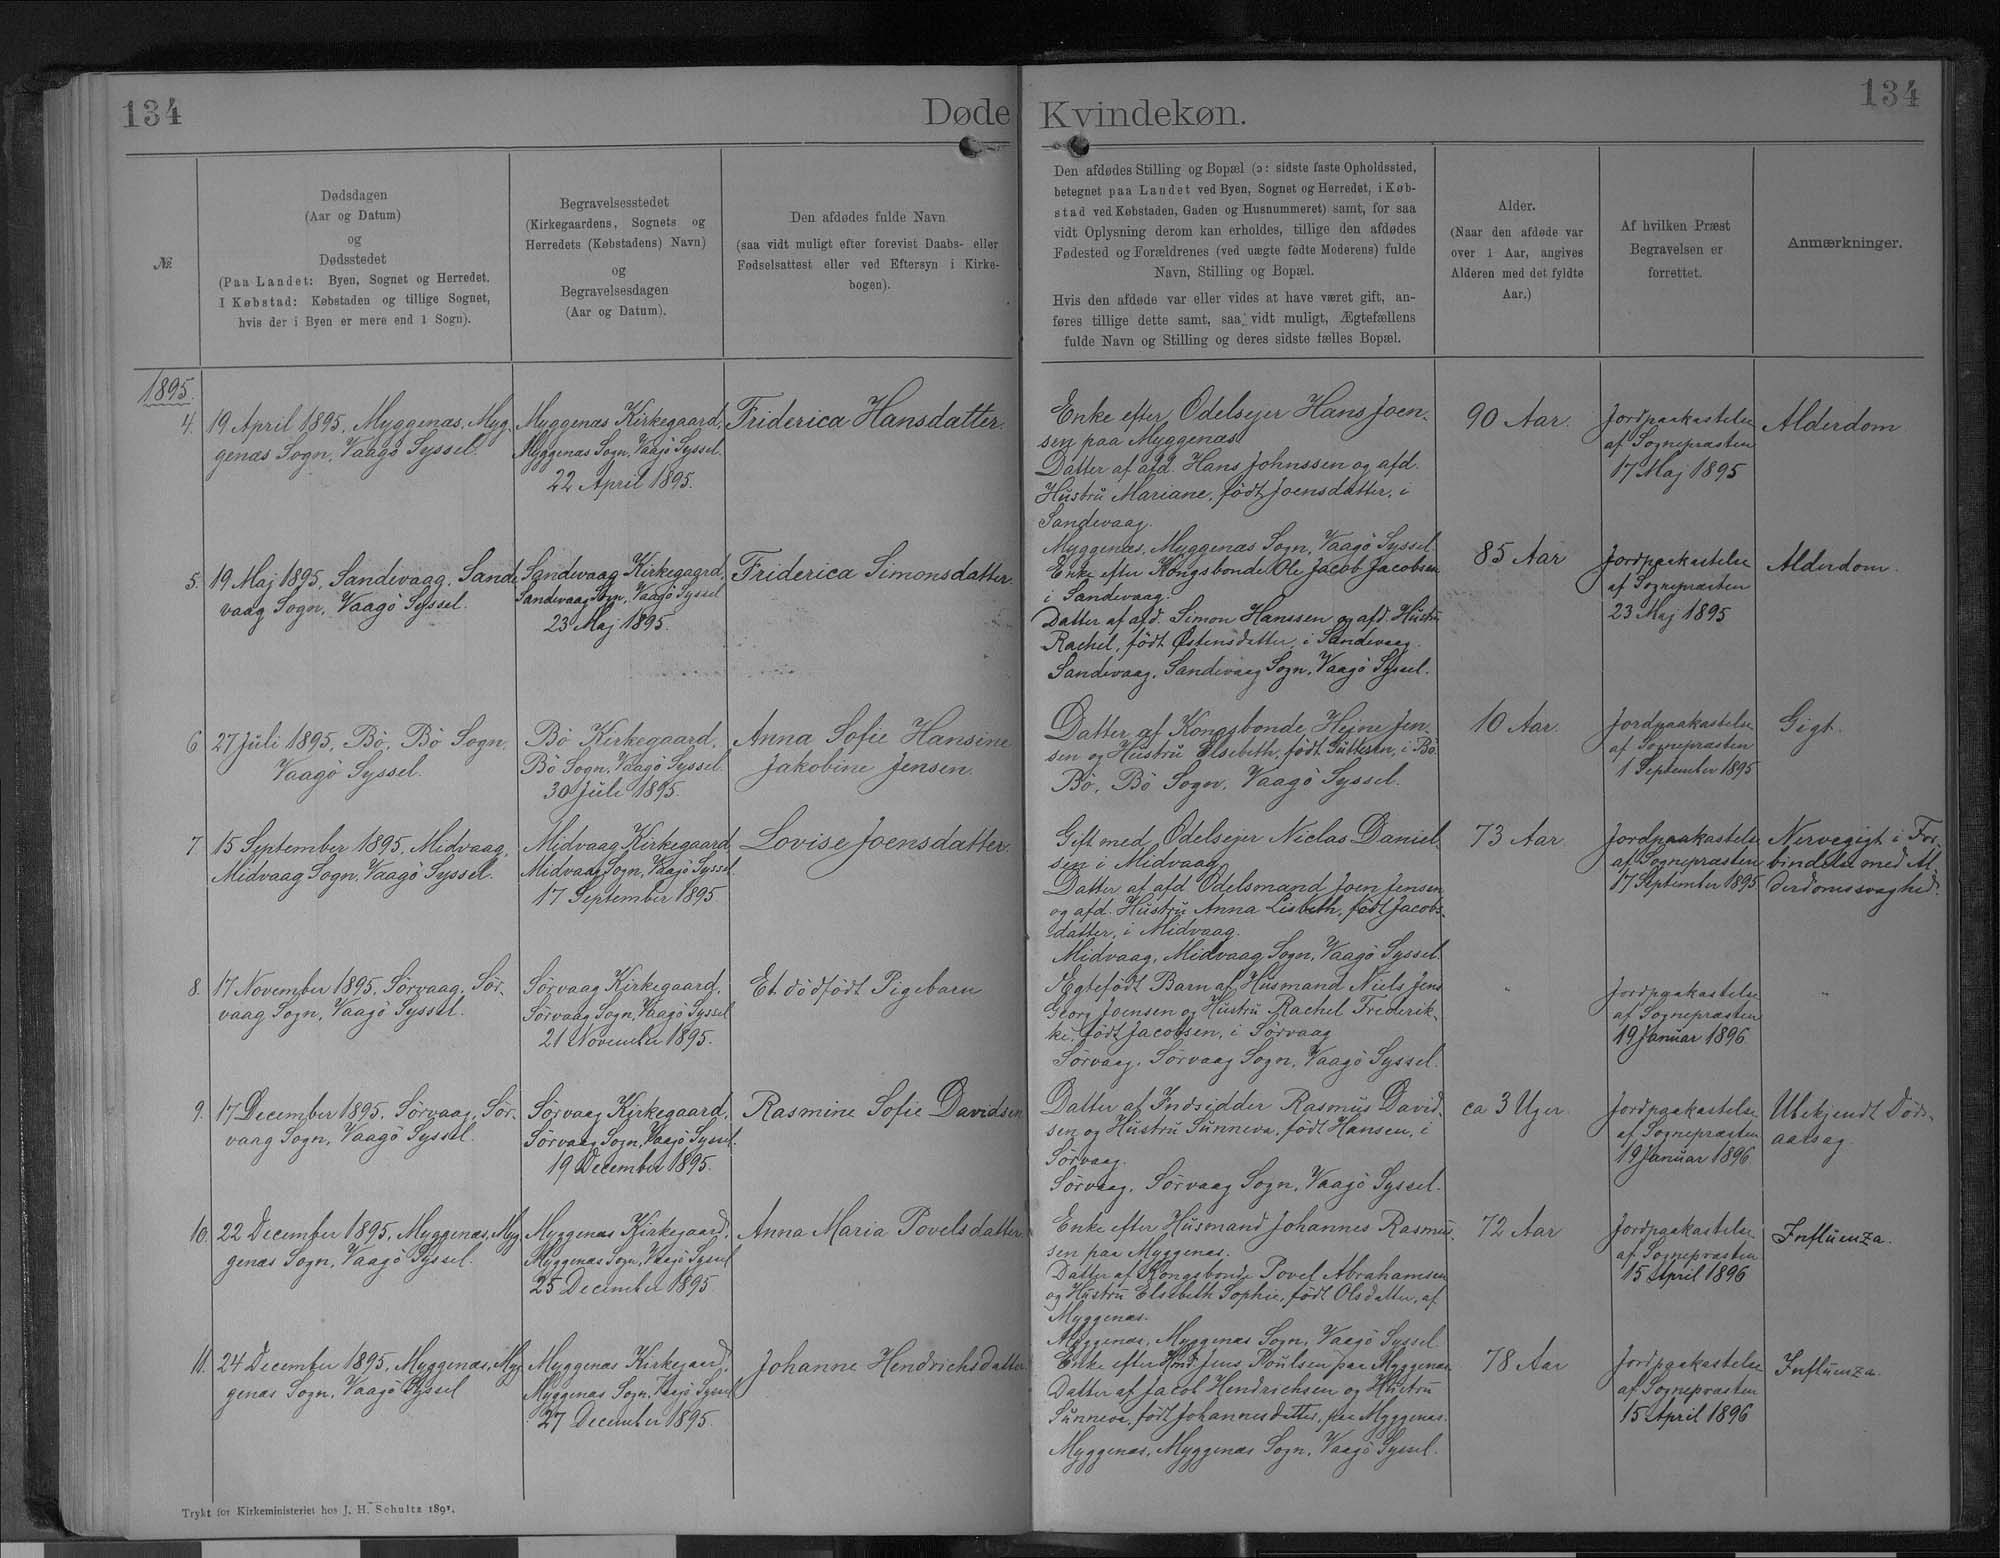 134
Døde
Kvindekøn.
134
№
Dødsdagen
(Aar og Datum)
og
Dødsstedet
(Paa Landet: Byen, Sognet og Herredet.
I Købstad: Købstaden og tillige Sognet,
hvis der i Byen er mere end 1 Sogn).
Begravelsesstedet
(Kirkegaardens, Sognets og
Herredets (Købstadens) Navn)
og
Begravelsesdagen
(Aar og Datum).
Den afdødes fulde Navn
(saa vidt muligt efter forevist Daabs- eller
Fødselsattest eller ved Eftersyn i Kirke-
bogen).
Den afdødes Stilling og Bopæl (ɔ: sidste faste Opholdssted,
betegnet paa Landet ved Byen, Sognet og Herredet, i Køb-
stad ved Købstaden, Gaden og Husnummeret) samt, for saa
vidt Oplysning derom kan erholdes, tillige den afdødes
Fødested og Forældrenes (ved uægte fødte Moderens) fulde
Navn, Stilling og Bopæl.
Hvis den afdøde var eller vides at have været gift, an-
føres tillige dette samt, saa vidt muligt, Ægtefællens
fulde Navn og Stilling og deres sidste fælles Bopæl.
Alder.
(Naar den afdøde var
over 1 Aar, angives
Alderen med det fyldte
Aar.)
Af hvilken Præst
Begravelsen er
forrettet.
Anmærkninger.
1895.
4.
19 April 1895. Myggenæs, Myg-
genæs Sogn, Vaagö Syssel.
Myggenæs Kirkegaard,
Myggenæs Sogn, Vaagö Syssel
22 April 1895.
Friderica Hansdatter.
Enke efter Odelsejer Hans Joen-
sen paa Myggenæs.
Datter af afd. Hans Johnssen og afd.
Hustru Mariane, födt Joensdatter, i
Sandevaag.
Myggenæs, Myggenæs Sogn, Vaagö Syssel.
90 Aar.
Jordpaakastelse
af Sognepræsten
17 Maj 1895
Alderdom
5.
19 Maj 1895, Sandevaag, Sande-
vaag Sogn, Vaagö Syssel.
Sandevaag Kirkegaard,
Sandevaag Sogn, Vaagö Syssel
23 Maj 1895.
Friderica Simonsdatter.
Enke efter Kongsbonde Ole Jacob Jacobsen
i Sandevaag.
Datter af afd. Simon Hanssen og afd. Hustru
Rachel, födt Østensdatter, i Sandevaag.
Sandevaag, Sandevaag Sogn, Vaagö Syssel.
85 Aar
Jordpaakastelse
af Sognepræsten
23 Maj 1895
Alderdom.
6
27 Juli 1895. Bö, Bö Sogn,
Vaagö Syssel.
Bö Kirkegaard,
Bö Sogn, Vaagö Syssel
30 Juli 1895.
Anna Sofie Hansine
Jakobine Jensen.
Datter af Kongsbonde Hejne Jen-
sen og Hustru Elsebeth, födt Guttesen, i Bö.
Bö, Bö Sogn, Vaagö Syssel.
10 Aar.
Jordpaakastelse
af Sognepræsten
1 September 1895
Gigt.
7
15 September 1895. Midvaag,
Midvaag Sogn, Vaagö Syssel.
Midvaag Kirkegaard
Midvaag Sogn, Vaagö Syssel
17 September 1895.
Lovise Joensdatter.
Gift med Odelsejer Niclas Daniel-
sen i Midvaag.
Datter af afd Odelsmand Joen Jensen
og afd. Hustru Anna Lisbeth, födt Jacobs-
datter, i Midvaag.
Midvaag, Midvaag Sogn, Vaagö Syssel.
73 Aar
Jordpaakastelse
af Sognepræsten
17 September 1895
Nervegigt i For-
bindelse med Al-
derdomssvaghed.
8.
17 November 1895. Sörvaag, Sör-
vaag Sogn, Vaagö Syssel.
Sörvaag Kirkegaard,
Sörvaag Sogn, Vaagö Syssel
21 November 1895.
Et dödfödt Pigebarn
Ægtefödt Barn af Husmand Niels Jens
Georg Joensen og Hustru Rachel Frederik-
ke, födt Jacobsen, i Sörvaag
Sörvaag, Sörvaag Sogn, Vaagö Syssel.
"
Jordpaakastelse
af Sognepræsten
19 Januar 1896
"
9.
17 December 1895. Sörvaag, Sör-
vaag Sogn, Vaagö Syssel.
Sörvaag Kirkegaard,
Sörvaag Sogn, Vaagö Syssel.
19 December 1895.
Rasmine Sofie Davidsen
Datter af Indsidder Rasmus David-
sen og Hustru Sunneva, födt Hansen, i
Sörvaag.
Sörvaag, Sörvaag Sogn, Vaagö Syssel.
ca 3 Uger.
Jordpaakastelse
af Sognepræsten
19 Januar 1896
Ubekjendt Döds-
aarsag.
10.
22 December 1895, Myggenæs, Myg-
genæs Sogn, Vaagö Syssel.
Myggenæs Kirkegaard,
Myggenæs Sogn, Vaagö Syssel
25 December 1895.
Anna Maria Povelsdatter.
Enke efter Husmand Johannes Rasmus-
sen paa Myggenæs.
Datter af Kongsbonde Povel Abrahamsen
og Hustru Elsebeth Sophie, födt Olsdatter, af
Myggenæs.
Myggenæs, Myggenæs Sogn, Vaagö Syssel.
72 Aar
Jordpaakastelse
af Sognepræsten
15 April 1896
Influenza.
11.
24 December 1895, Myggenæs, Myg-
genæs Sogn, Vaagö Syssel
Myggenæs Kirkegaard,
Myggenæs Sogn, Vaagö Syssel
27 December 1895.
Johanne Hendrichsdatter
Enke efter Hmd. Jens Poulsen paa Myggenæs
Datter af Jacob Hendrichsen og Hustru
Sunneva, födt Johannesdatter, paa Myggenæs.
Myggenæs, Myggenæs Sogn, Vaagö Syssel.
78 Aar
Jordpaakastelse
af Sognepræsten
15 April 1896
Influenza.
Trykt for Kirkeministeriet hos J. H. Schultz 1891.